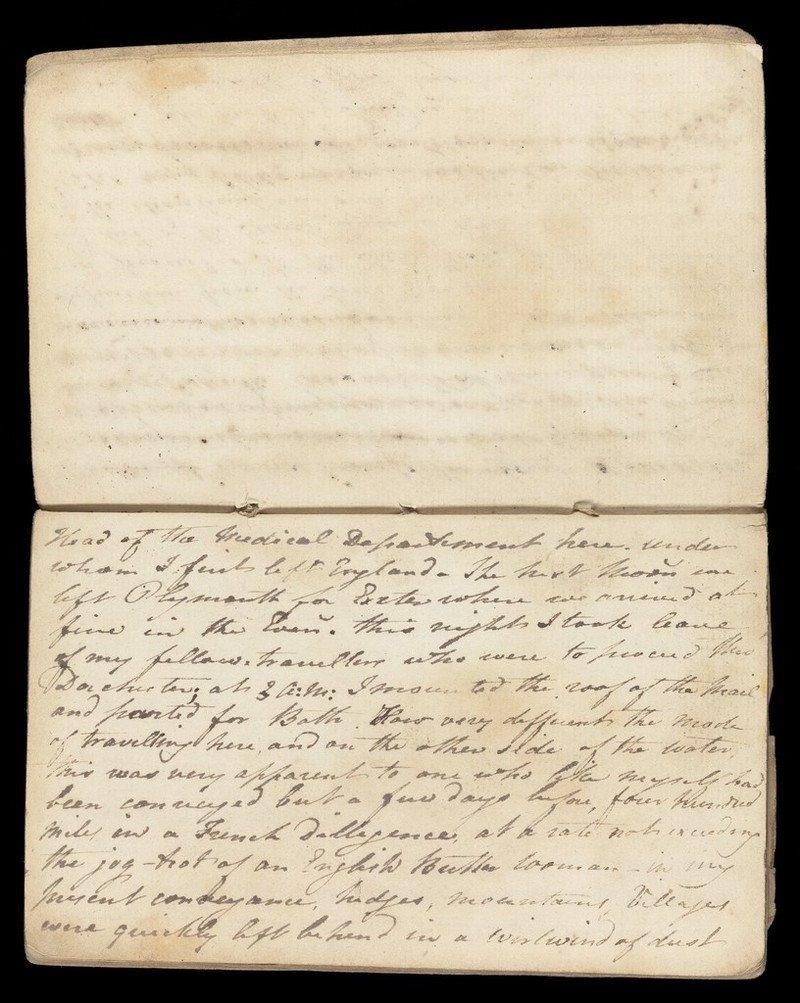 Head of the Medical Department here. under
whom I first left England - The next Morn̄ we
left Plymouth for Exeter where we arrived at
five in the Even̄. this night I took leave
of my fellow-travellers who were to proceed thro
Dorchester; at 3 A:M: I mounted the roof of the Mail
and parted for Bath. How very different the mode
of travelling here, and on the other side of the water,
this was very apparent to one who like myself had
been conveyed but a few days before, four hundred
Miles in a French Dilligence, at a rate not exceeding
the jog-trot of an English Butter Woman - in my
present conveyance, hedges, mountains, Villages
were quickly left behind in a wirlwind of dust